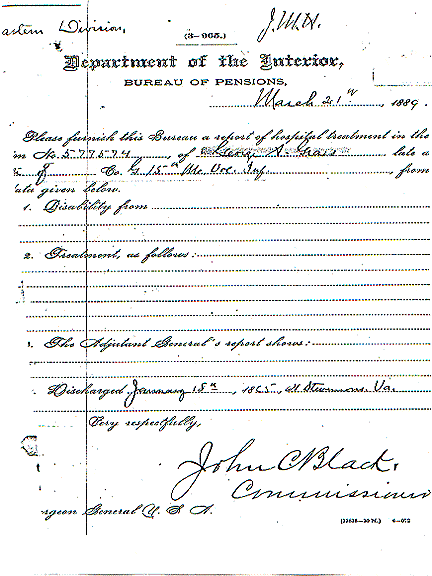 astern Division,
J.W.H.
(3-965.)
Department of the Interior,
BUREAU OF PENSIONS,
March 21st, 1889.
Please furnish this Bureau a report of hospital treatment in the
m No. 577574, of late a
of Co. G 15th Me. Vol. Inf., from
ata given below.
1. Disability from
2. Treatment, as follows:
3. The Adjutant General's report shows:
Discharged January 18th, 1865, at Va.
Very respectfully,
John C Black,
Commissioner
rgeon General U. S. A.
6-072